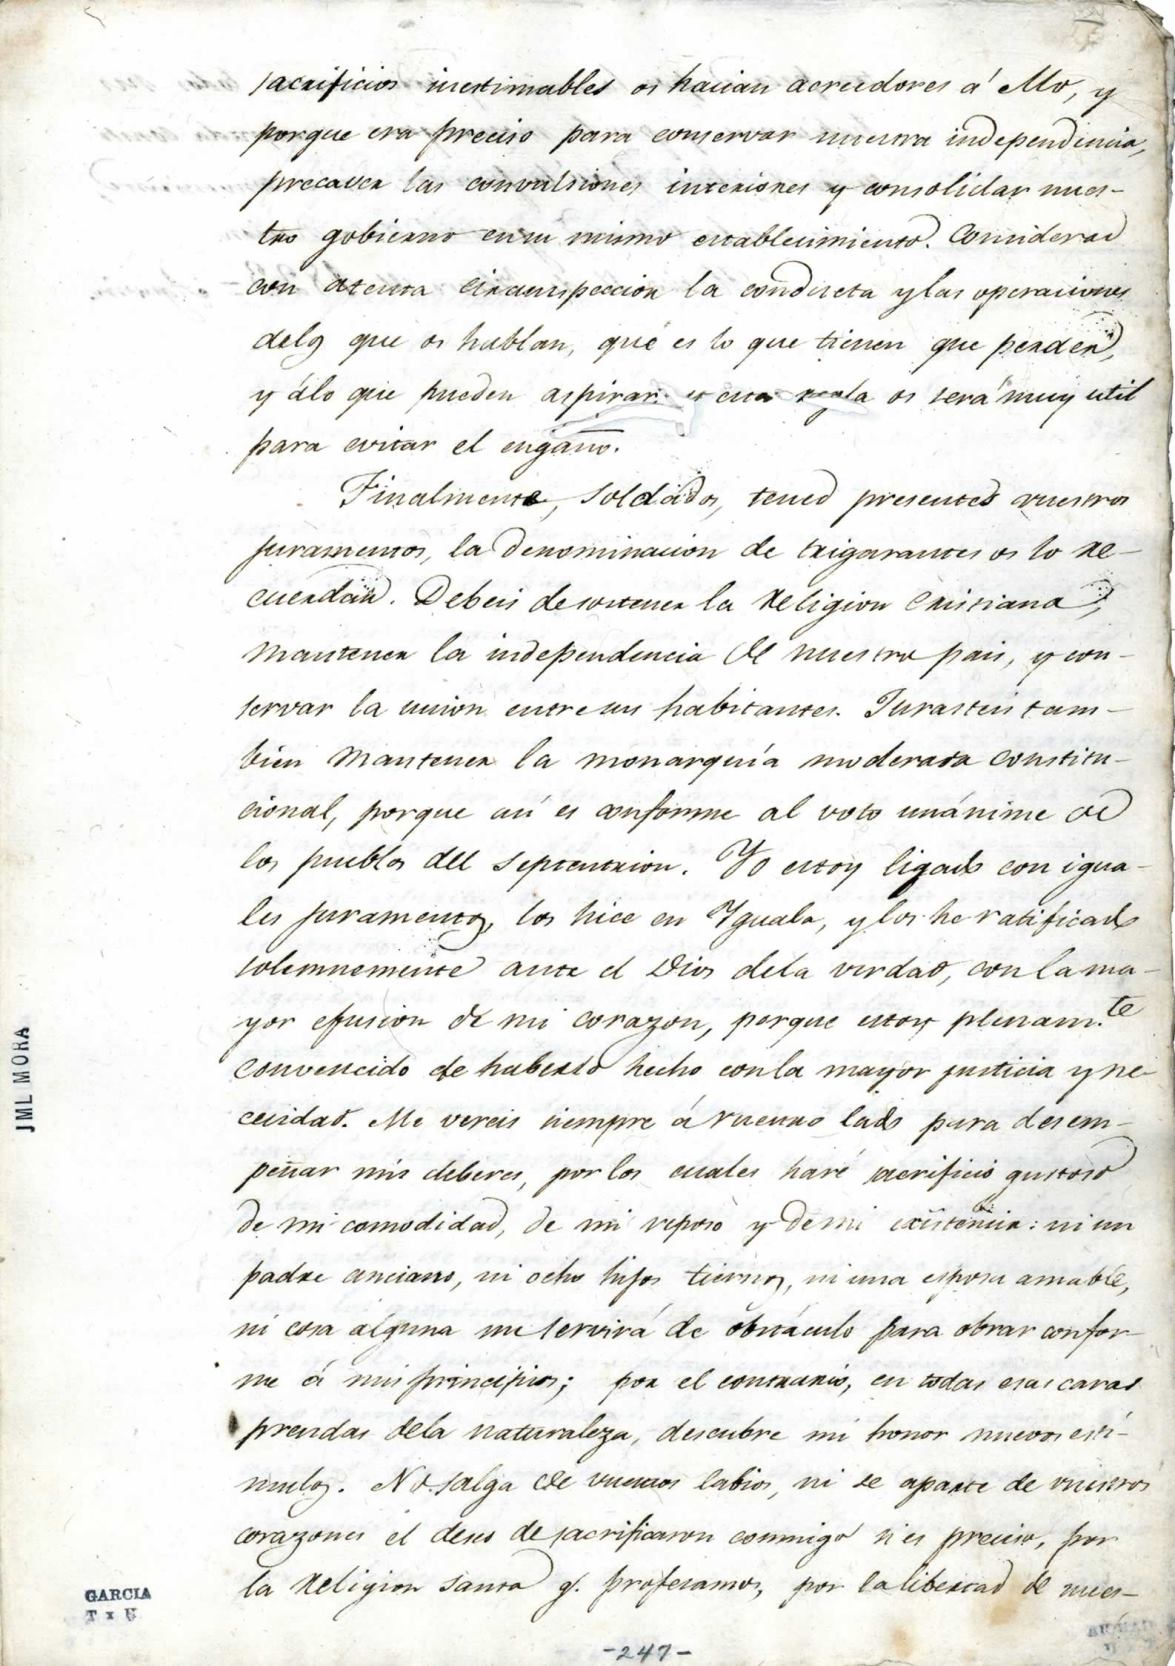 sacrificios inestimables os hacian acreedores á ello, y
porque era preciso para conservar nuestra independencia,
precaver las convulsiones interiores y consolidar nues-
tro gobierno en su mismo establecimiento. Considerad
con atenta circunspeccion la conducta y las operaciones
delos que os hablan, qué es lo que tienen que perder,
y álo que pueden aspirar: y esta regla os será muy util
para evitar el engaño.
Finalmente, soldados, tened presentes vuestros
juramentos, la denominacion de trigarantes os lo re-
cuerdan. Debeis de sostener la Religion Cristiana,
mantener la independencia de nuestro pais, y con-
servar la union entre sus habitantes. Jurasteis tam-
bien mantener la monarquía moderada constitu-
cional, porque asi es conforme al voto unánime de
los pueblos del Septentrion. Yo estoy ligado con igua-
les juramentos, los hice en Yguala, y los he ratificado
solemnemente ante el Dios dela verdad, con la ma-
yor efusion de mi corazon, porque estoy plenam.te
convencido de haberlo hecho conla mayor justicia y ne-
cesidad. Me vereis siempre á vuestro lado para desem-
peñar mis deberes, por los cuales haré sacrificio gustoso
de mi comodidad, de mi reposo y de mi existencia: ni un
padre anciano, ni ocho hijos tiernos, ni una esposa amable,
ni cosa alguna me servirá de obstáculo para obrar confor-
me á mis principios; por el contrario, en todas esas caras
prendas dela naturaleza, descubre mi honor nuevos estí-
mulos. No salga de vuestros labios, ni se aparte de vuestros
corazones el deseo de sacrificaron conmigo si es preciso, por
la Religion santa q. profesamos, por la libertad de nues-
JML MORA
GARCIA
T x U
-247-